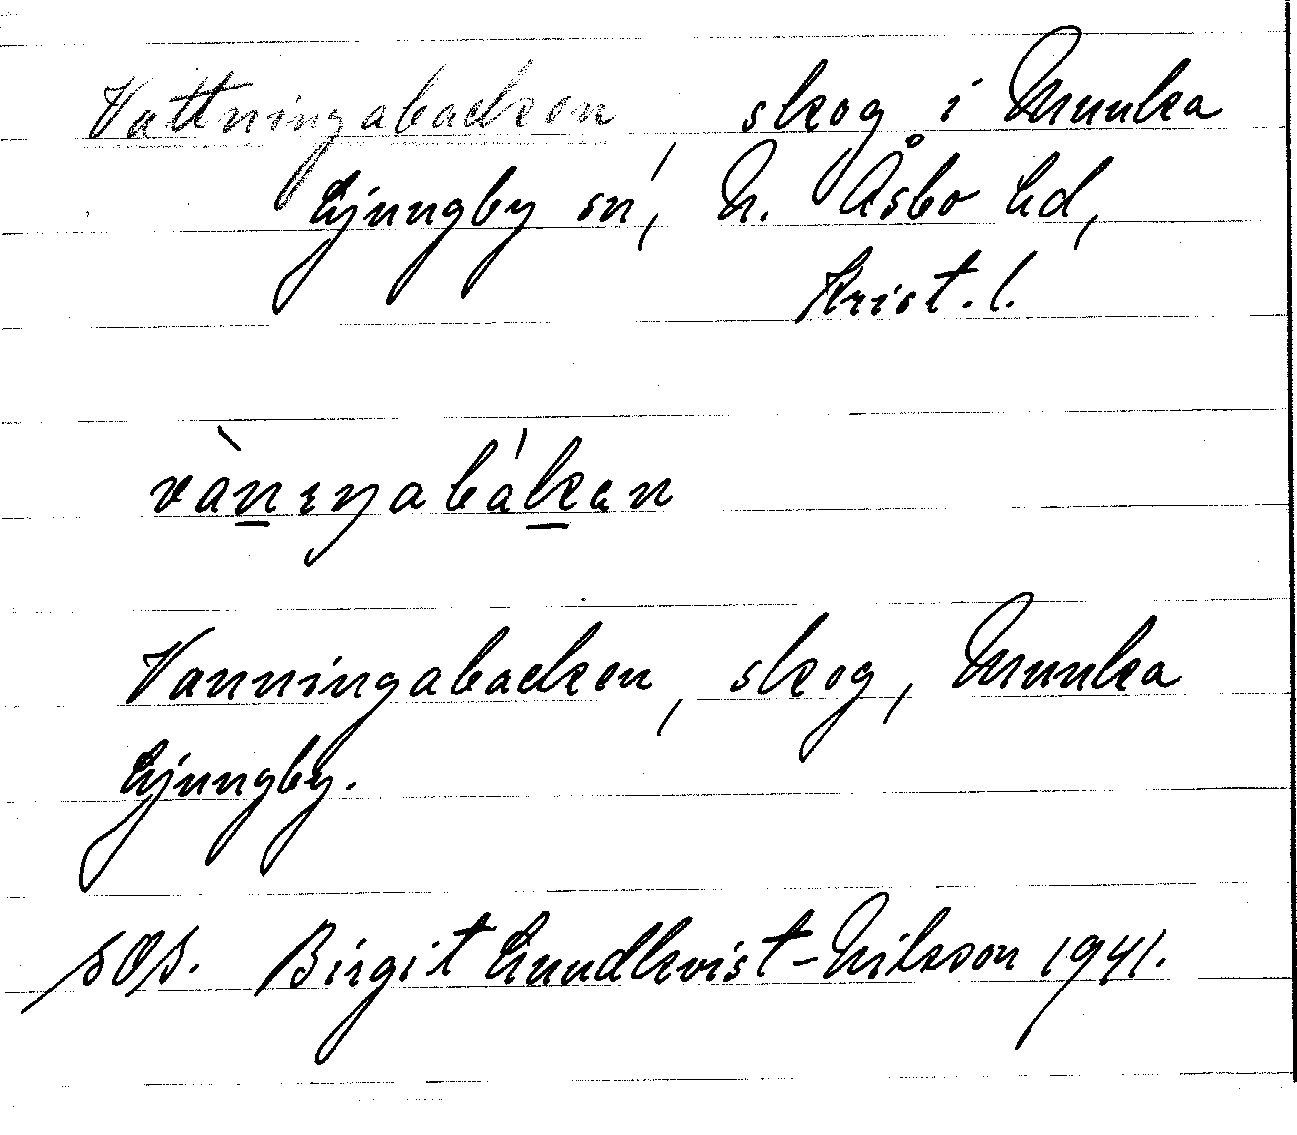 Vattningabacken, skog i Munka
Ljungby sn, N. Åsbo hd,
Krist. l.
vànıŋabákən
Vanningabacken, skog, Munka
Ljungby.
SOS. Birgit Lundkvist-Nilsson 1941.